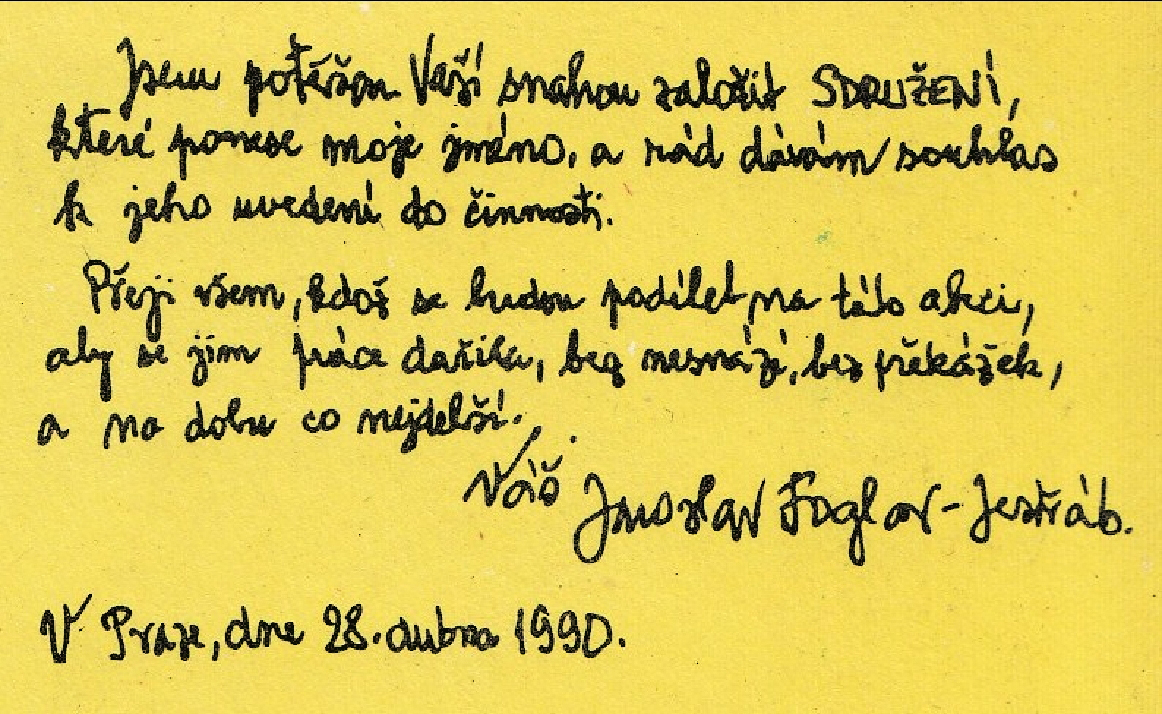 Jsem potěšen Vaší snahou založit SDRUŽENÍ,
které ponese moje jméno, a rád dávám souhlas
k jeho uvedení do činnosti.
Přeji všem, kdož se budou podílet na této akci,
aby se jim práce dařila, bez nesnází, bez překážek,
a na dobu co nejdelší.
Váš Jaroslav Foglar-Jestřáb.
V Praze, dne 28. dubna 1990.